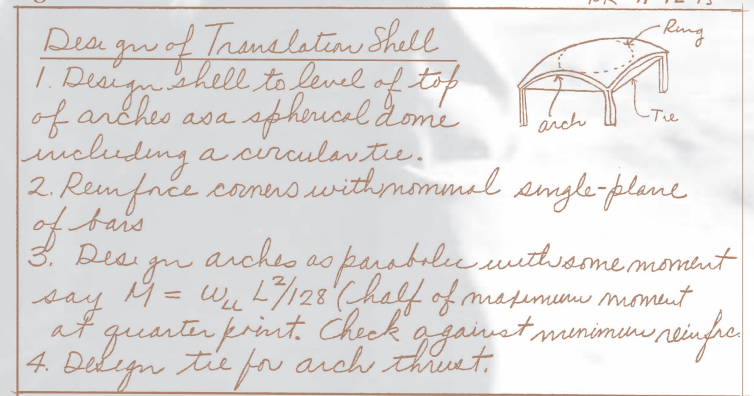 Design of Translation Shell
Ring
1. Design shell to level of top
of arches as a spherical dome
arch
Tie
including a circular tie.
2. Reinforce corners with nominal single-plane
of bars
3. Design arches as parabolic with some moment
say M = Wu L²/128 (half of maximum moment
at quarter point. Check against minimum reinfrc.
4. Design tie for arch thrust.